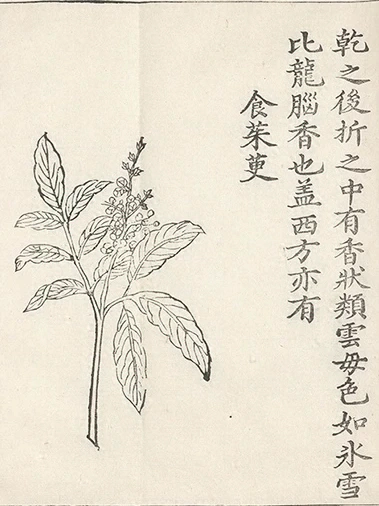 乾之後折之中有香狀類雲母色如氷雪
比龍腦香也盖西方亦有
食茱萸